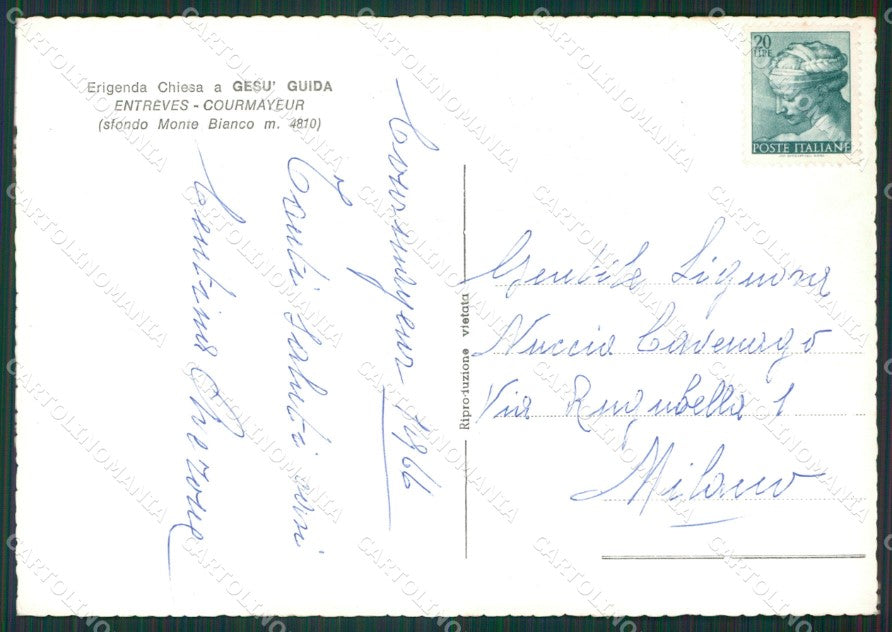 Erigenda Chiesa a GESU' GUIDA
ENTRÈVES - COURMAYEUR
(sfondo Monte Bianco m. 4810)
Courmayeur 1966
Tanti saluti
Riproduzione vietata
20
LIRE
POSTE ITALIANE
Gentile Signora
Nuccia Cavenago
Via Rugabella 1
Milano
CARTOLINOMANIA